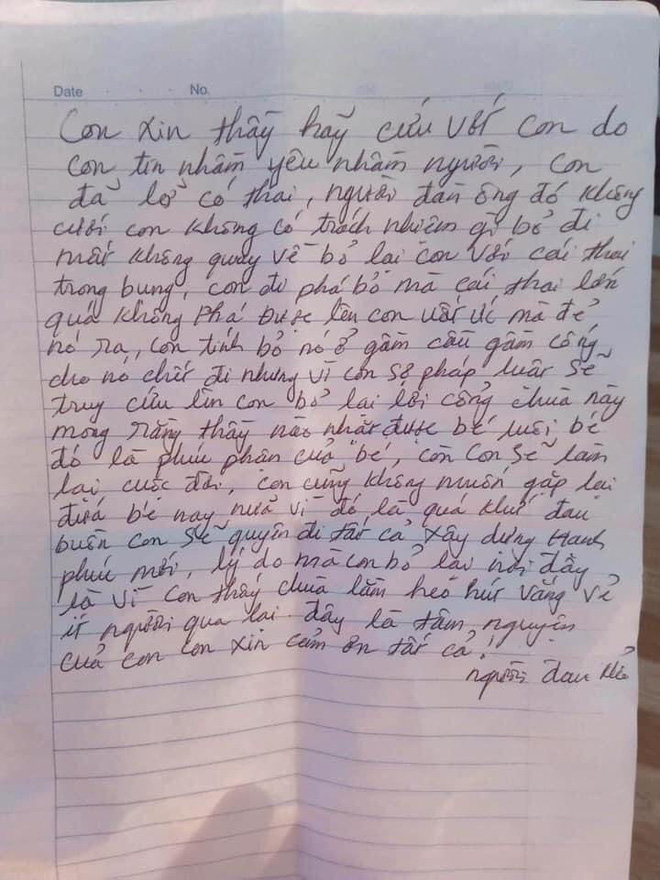 Date No.
Con xin thầy hãy cứu vớt con do
con tin nhầm yêu nhầm người, con
đã lở có thai, người đàn ông đó không
cưới con không có trách nhiệm gì bỏ đi
mất không quay về bỏ lại con với cái thai
trong bụng, con đi phá bỏ mà cái thai lớn
quá không phá được lên con uất ức mà đẻ
nó ra, con tính bỏ nó ở gầm cầu gầm cống
cho nó chết đi nhưng vì con sợ pháp luật sẽ
truy cứu lên con bỏ lại lối cổng chùa này
mong rằng thầy nào nhặt được bé nuôi bé
đó là phúc phần của bé, còn con sẽ làm
lại cuộc đời, con cũng không muốn gặp lại
đứa bé này nữa vì đó là quá khứ đau
buồn con sẽ quyên đi tất cả xây dựng Hạnh
phúc mới, lý do mà con bỏ lại nơi đây
là vì con thấy chùa lằm heó hút vắng vẻ
ít người qua lại đây là tâm nguyện
của con con xin cảm ơn tất cả!
người đau khổ